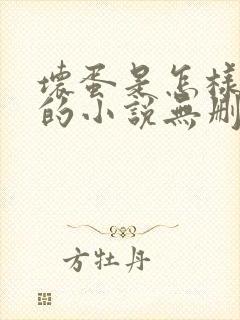 壞蛋是怎樣
的小說無刪
方牡丹